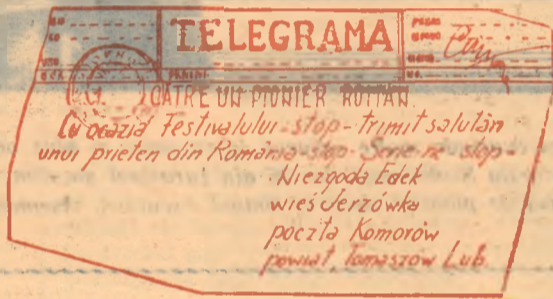 TELEGRAMA
CĂTRE UN PIONIER ROMÂN.
Cu ocazia Festivalului-stop-trimit salutări
unui prieten din România-stop-Scrie-ne-stop-
Niezgoda Edek
wieś Jerzówka
poczta Komorów
powiat, Tomaszów Lub.